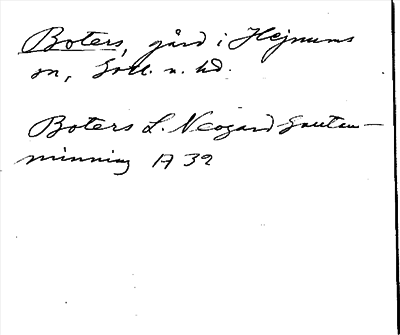 Boters, gård i Hejnums
sn, Gotl. n. hd.
Boters L. Neogard Gautau-
minning A 39